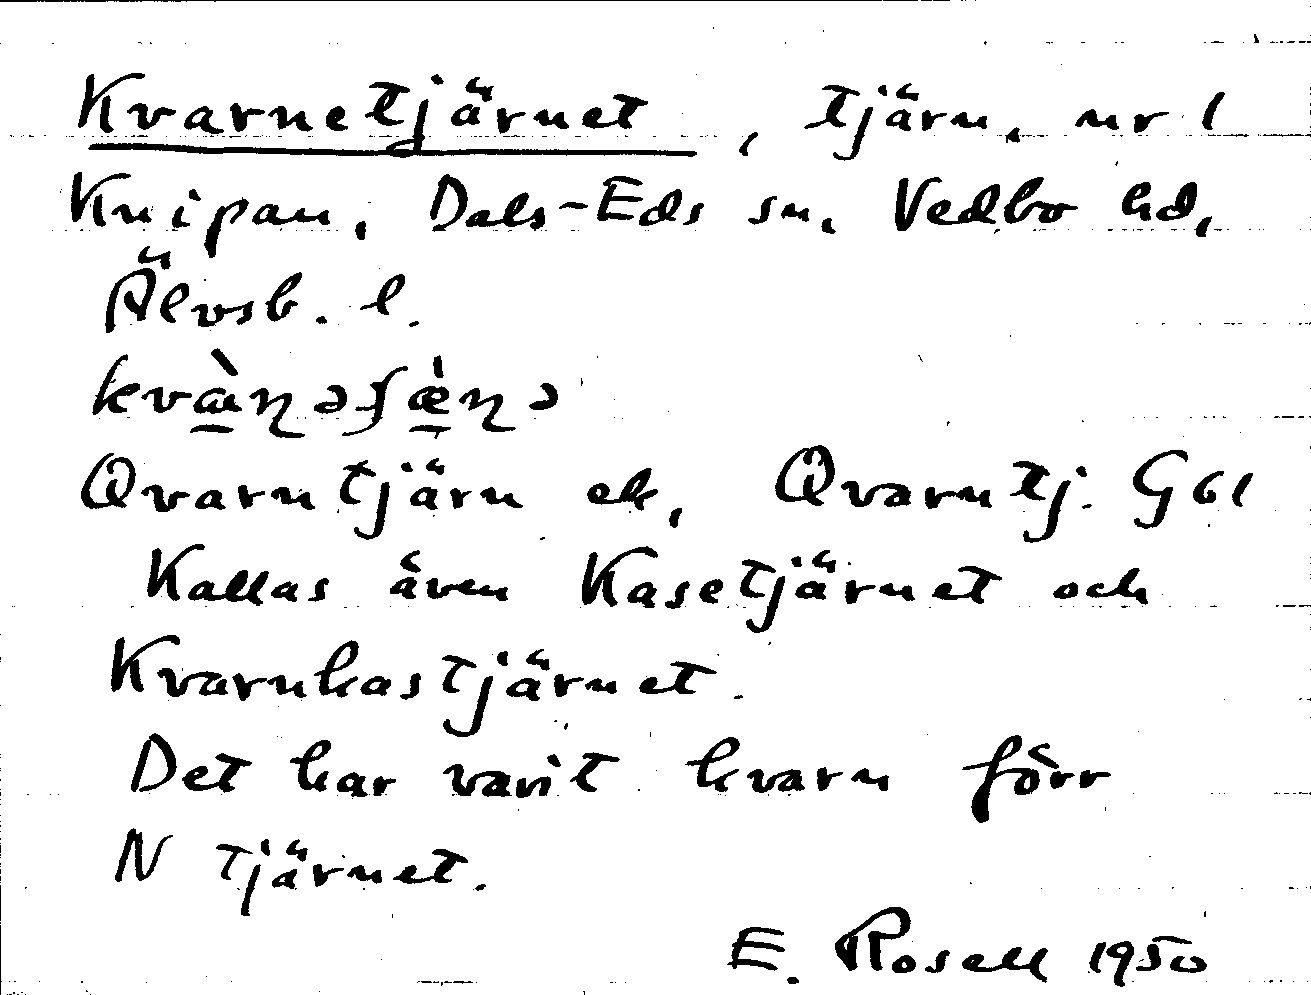 Kvarnetjärnet, tjärn, nr 1
Knipan, Dals-Eds sn, Vedbo hd,
Älvsb. l.
kvæ̀ɳəʃæ̀ɳə
Qvarntjärn ek, Qvarntj. G61
Kallas även Kasetjärnet och
Kvarnkastjärnet.
Det har varit kvarn förr
N tjärnet.
E. Rosell 1950